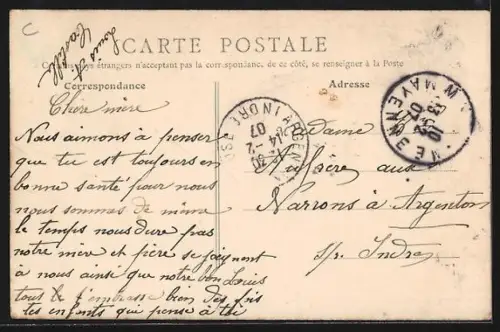 C
Louis et
CARTE POSTALE
Tous les pays étrangers n'acceptant pas la correspondance de ce côté, se renseigner à la Poste
Correspondance
Adresse
Chère mère
Nous aimons à penser
que tu est toujours en
bonne santé pour nous
nous sommes de même
le temps nous dure pas
notre mère et père se joignent
à nous ainsi que notre bon Louis
tous te t'embrasse bien des fois
tes enfants qui pense à toi
Madame
aux
Narrons à Argenton
s/r Indre
ARGENTON
INDRE
14-2
07
MAYENNE
13-2
07